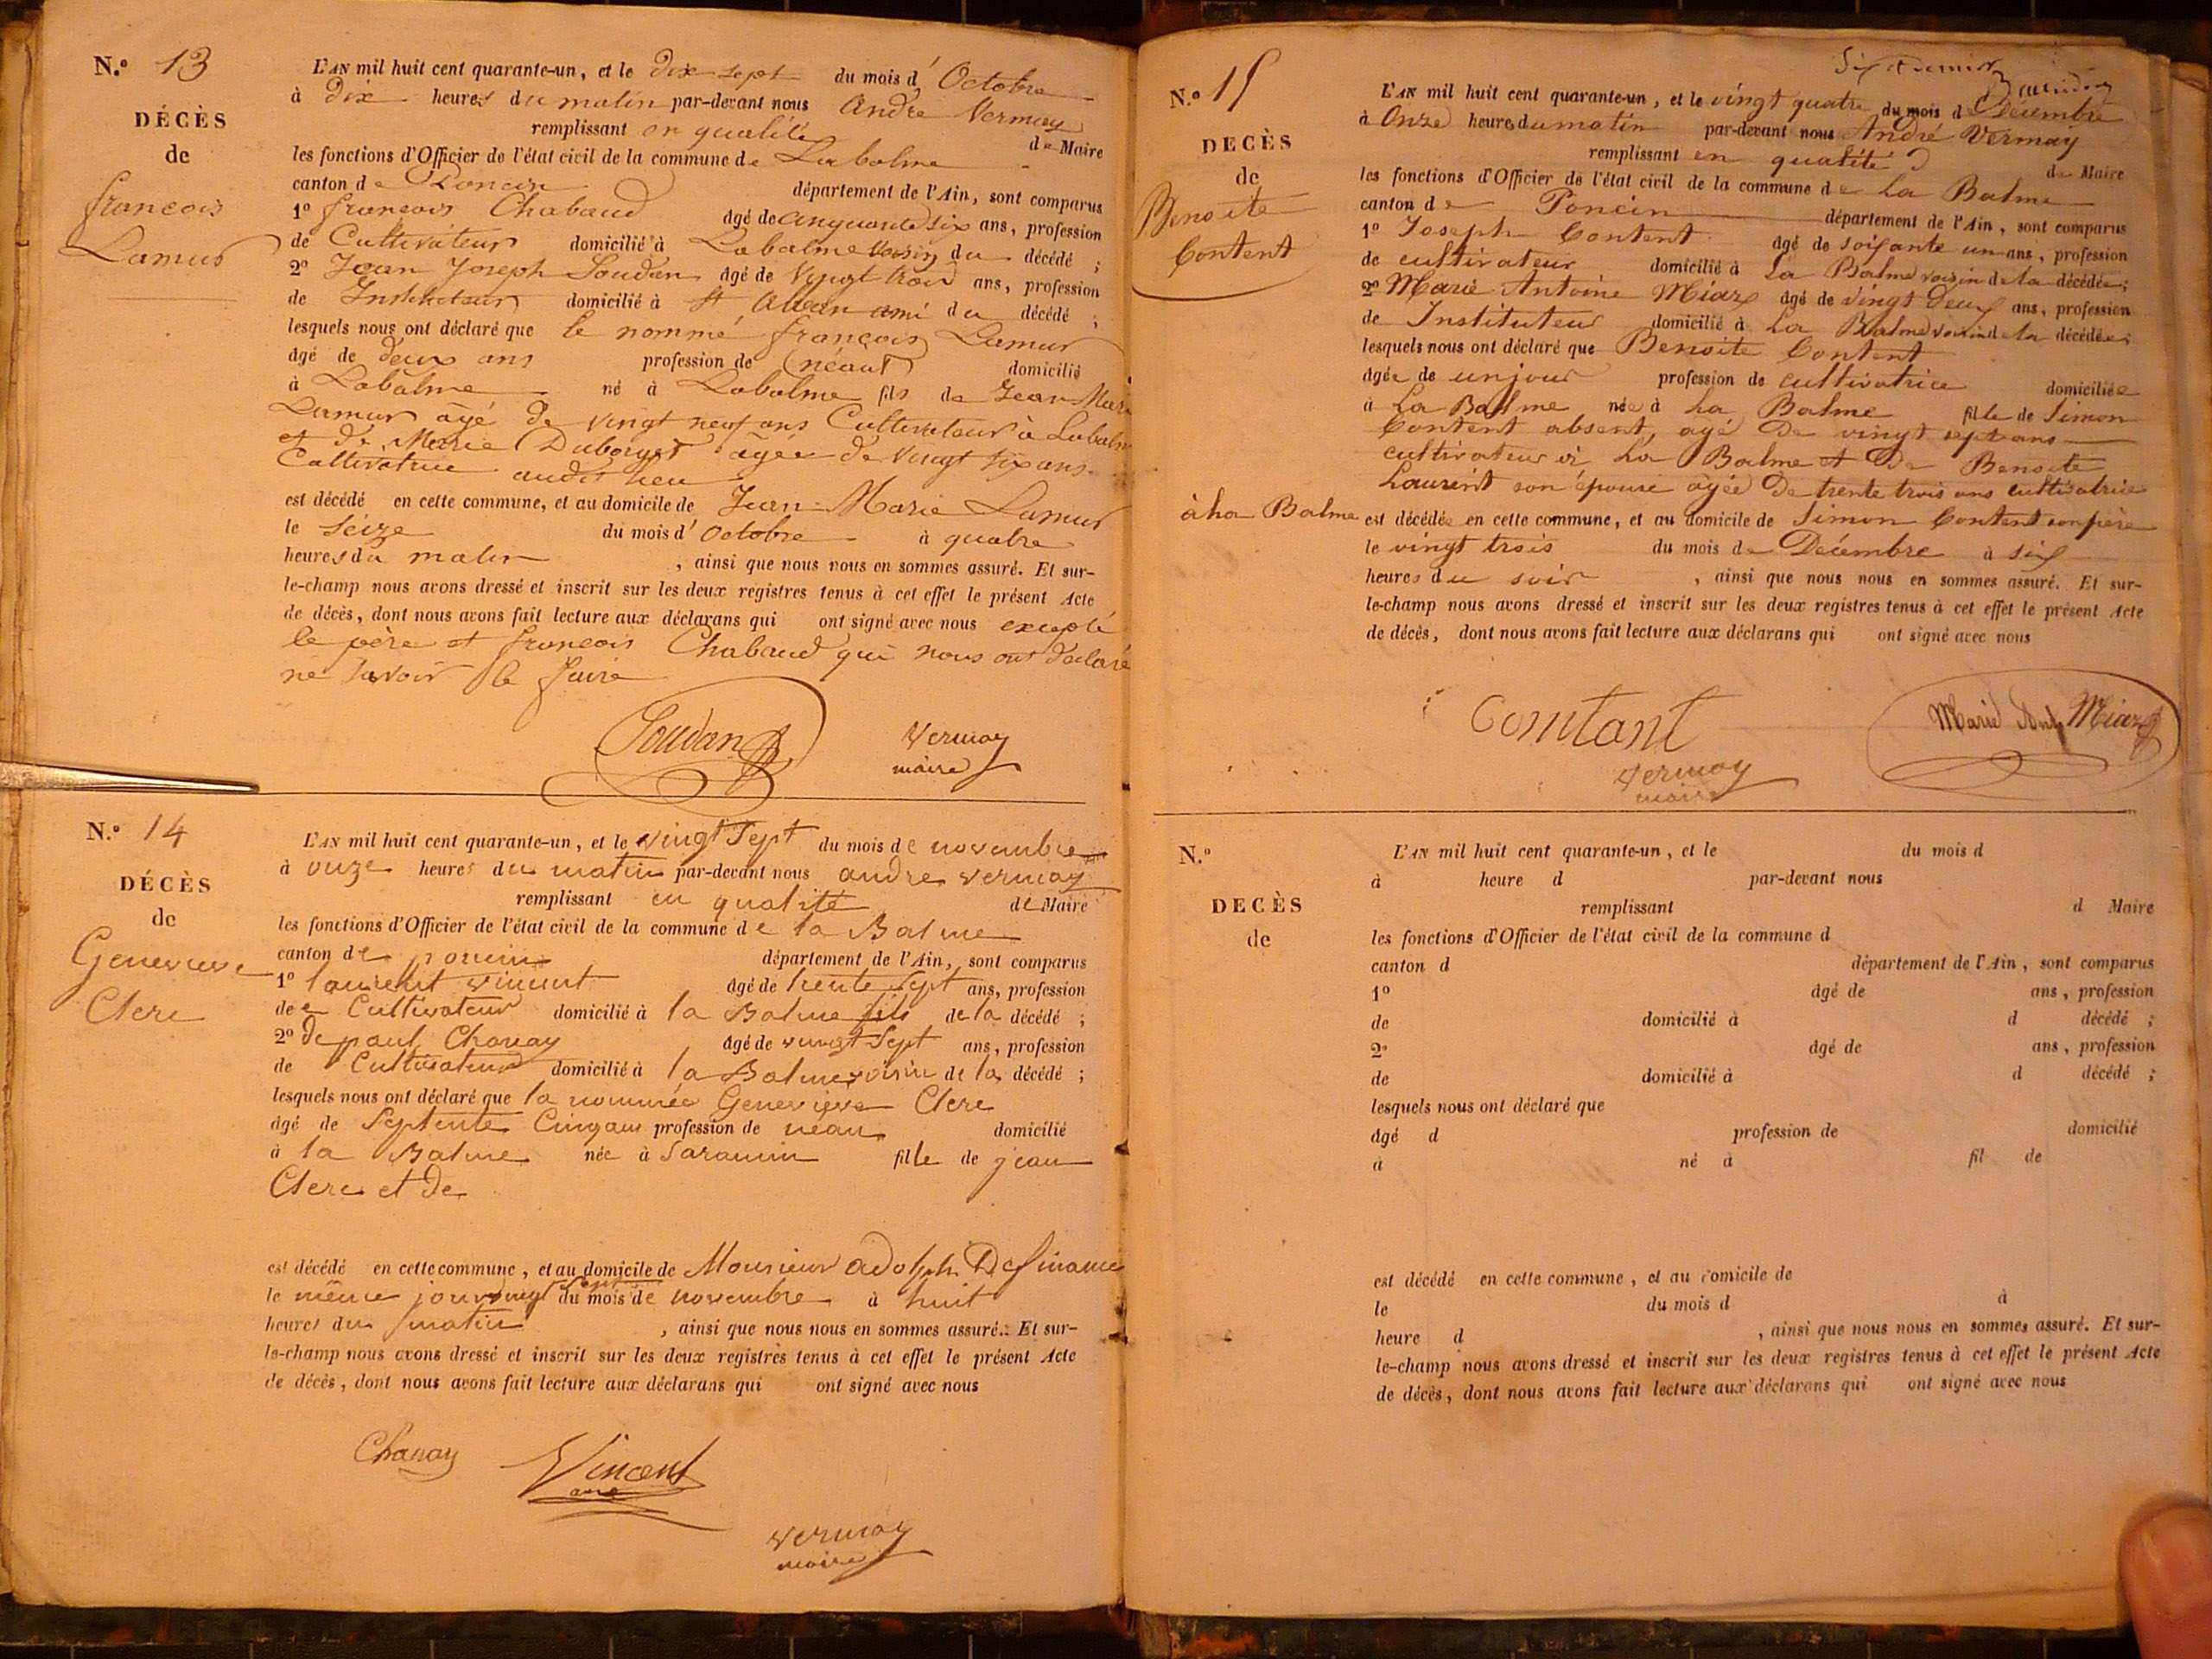 N.º 13
DÉCÈS
de
françois
Lamur
L'AN mil huit cent quarante-un, et le dix sept du mois d'Octobre
à dix heures du matin par-devant nous André Vermay
remplissant en qualité de Maire
les fonctions d'Officier de l'état civil de la commune de Labalme
canton de Poncin département de l'Ain, sont comparus
1º françois Chabaud âgé de cinquante six ans, profession
de Cultivateur domicilié à Labalme voisin du décédé ;
2º Jean Joseph Soudan âgé de Vingt trois ans, profession
de Instituteur domicilié à St Alban ami du décédé ;
lesquels nous ont déclaré que le nommé françois Lamur
âgé de deux ans profession de (néant) domicilié
à Labalme né à Labalme fils de Jean Marie
Lamur âgé de vingt neuf ans Cultivateur à Labalme
et de Marie Duborget âgée de Vingt six ans
Cultivatrice audit lieu
est décédé en cette commune, et au domicile de Jean Marie Lamur
le Séize du mois d'Octobre à quatre
heures du matin , ainsi que nous nous en sommes assuré. Et sur-
le-champ nous avons dressé et inscrit sur les deux registres tenus à cet effet le présent Acte
de décès, dont nous avons fait lecture aux déclarans qui ont signé avec nous excepté
le père et françois Chabaud qui nous ont déclaré
ne savoir le faire
Soudan Vermay
maire
N.º 14
DÉCÈS
de
Genevieve
Clerc
L'AN mil huit cent quarante-un, et le vingt Sept du mois de novembre
à onze heures du matin par-devant nous andre vermay
remplissant en qualité de Maire
les fonctions d'Officier de l'état civil de la commune de la Balme
canton de poncin département de l'Ain, sont comparus
1º laurent vincent âgé de trente Sept ans, profession
de Cultivateur domicilié à la Balme fils de la décédé ;
2º de paul Chanay âgé de vingt Sept ans, profession
de Cultivateur domicilié à la Balme voisin de la décédé ;
lesquels nous ont déclaré que la nommée Genevieve Clerc
âgé de Septente Cinq ans profession de nean domicilié
à la Balme née à fille de jean
Clerc et de
est décédé en cette commune, et au domicile de Monsieur adolph Definance
le même jour vingt Sept du mois de novembre à huit
heures du matin , ainsi que nous nous en sommes assuré. Et sur-
le-champ nous avons dressé et inscrit sur les deux registres tenus à cet effet le présent Acte
de décès, dont nous avons fait lecture aux déclarans qui ont signé avec nous
Chanay Vincent
vermay
maire
N.º 15
DECÈS
de
Benoite
Content
L'AN mil huit cent quarante-un, et le vingt quatre du mois de Décembre
à Onze heures du matin par-devant nous André Vermay
remplissant en qualité de Maire
les fonctions d'Officier de l'état civil de la commune de La Balme
canton de Poncin département de l'Ain, sont comparus
1º Joseph Content âgé de soixante un ans, profession
de cultivateur domicilié à La Balme voisin de la décédée ;
2º Marie Antoine Miaz âgé de vingt deux ans, profession
de Instituteur domicilié à La Balme voisin de la décédée ;
lesquels nous ont déclaré que Benoite Content
âgée de un jour profession de cultivatrice domiciliée
à La Balme née à La Balme fille de Simon
Content absent, agé de vingt sept ans
cultivateur à La Balme et de Benoite
Laurent son épouse agée de trente trois ans cultivatrice
à La Balme est décédée en cette commune, et au domicile de Simon Content son père
le vingt trois du mois de Décembre à six
heures du soir , ainsi que nous nous en sommes assuré. Et sur-
le-champ nous avons dressé et inscrit sur les deux registres tenus à cet effet le présent Acte
de décès, dont nous avons fait lecture aux déclarans qui ont signé avec nous
Comtant Marie Ant Miaz
vermay
maire
N.º
DECÈS
de
L'AN mil huit cent quarante-un, et le du mois d
à heure d par-devant nous
remplissant d Maire
les fonctions d'Officier de l'état civil de la commune d
canton d département de l'Ain, sont comparus
1º âgé de ans, profession
de domicilié à d décédé ;
2º âgé de ans, profession
de domicilié à d décédé ;
lesquels nous ont déclaré que
âgé d profession de domicilié
à né à fil de
est décédé en cette commune, et au domicile de
le du mois d à
heure d , ainsi que nous nous en sommes assuré. Et sur-
le-champ nous avons dressé et inscrit sur les deux registres tenus à cet effet le présent Acte
de décès, dont nous avons fait lecture aux déclarans qui ont signé avec nous